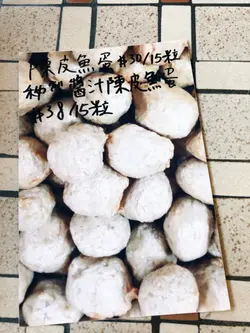 陳皮魚蛋 $30/15粒
秘制醬汁陳皮魚蛋
$38/15粒